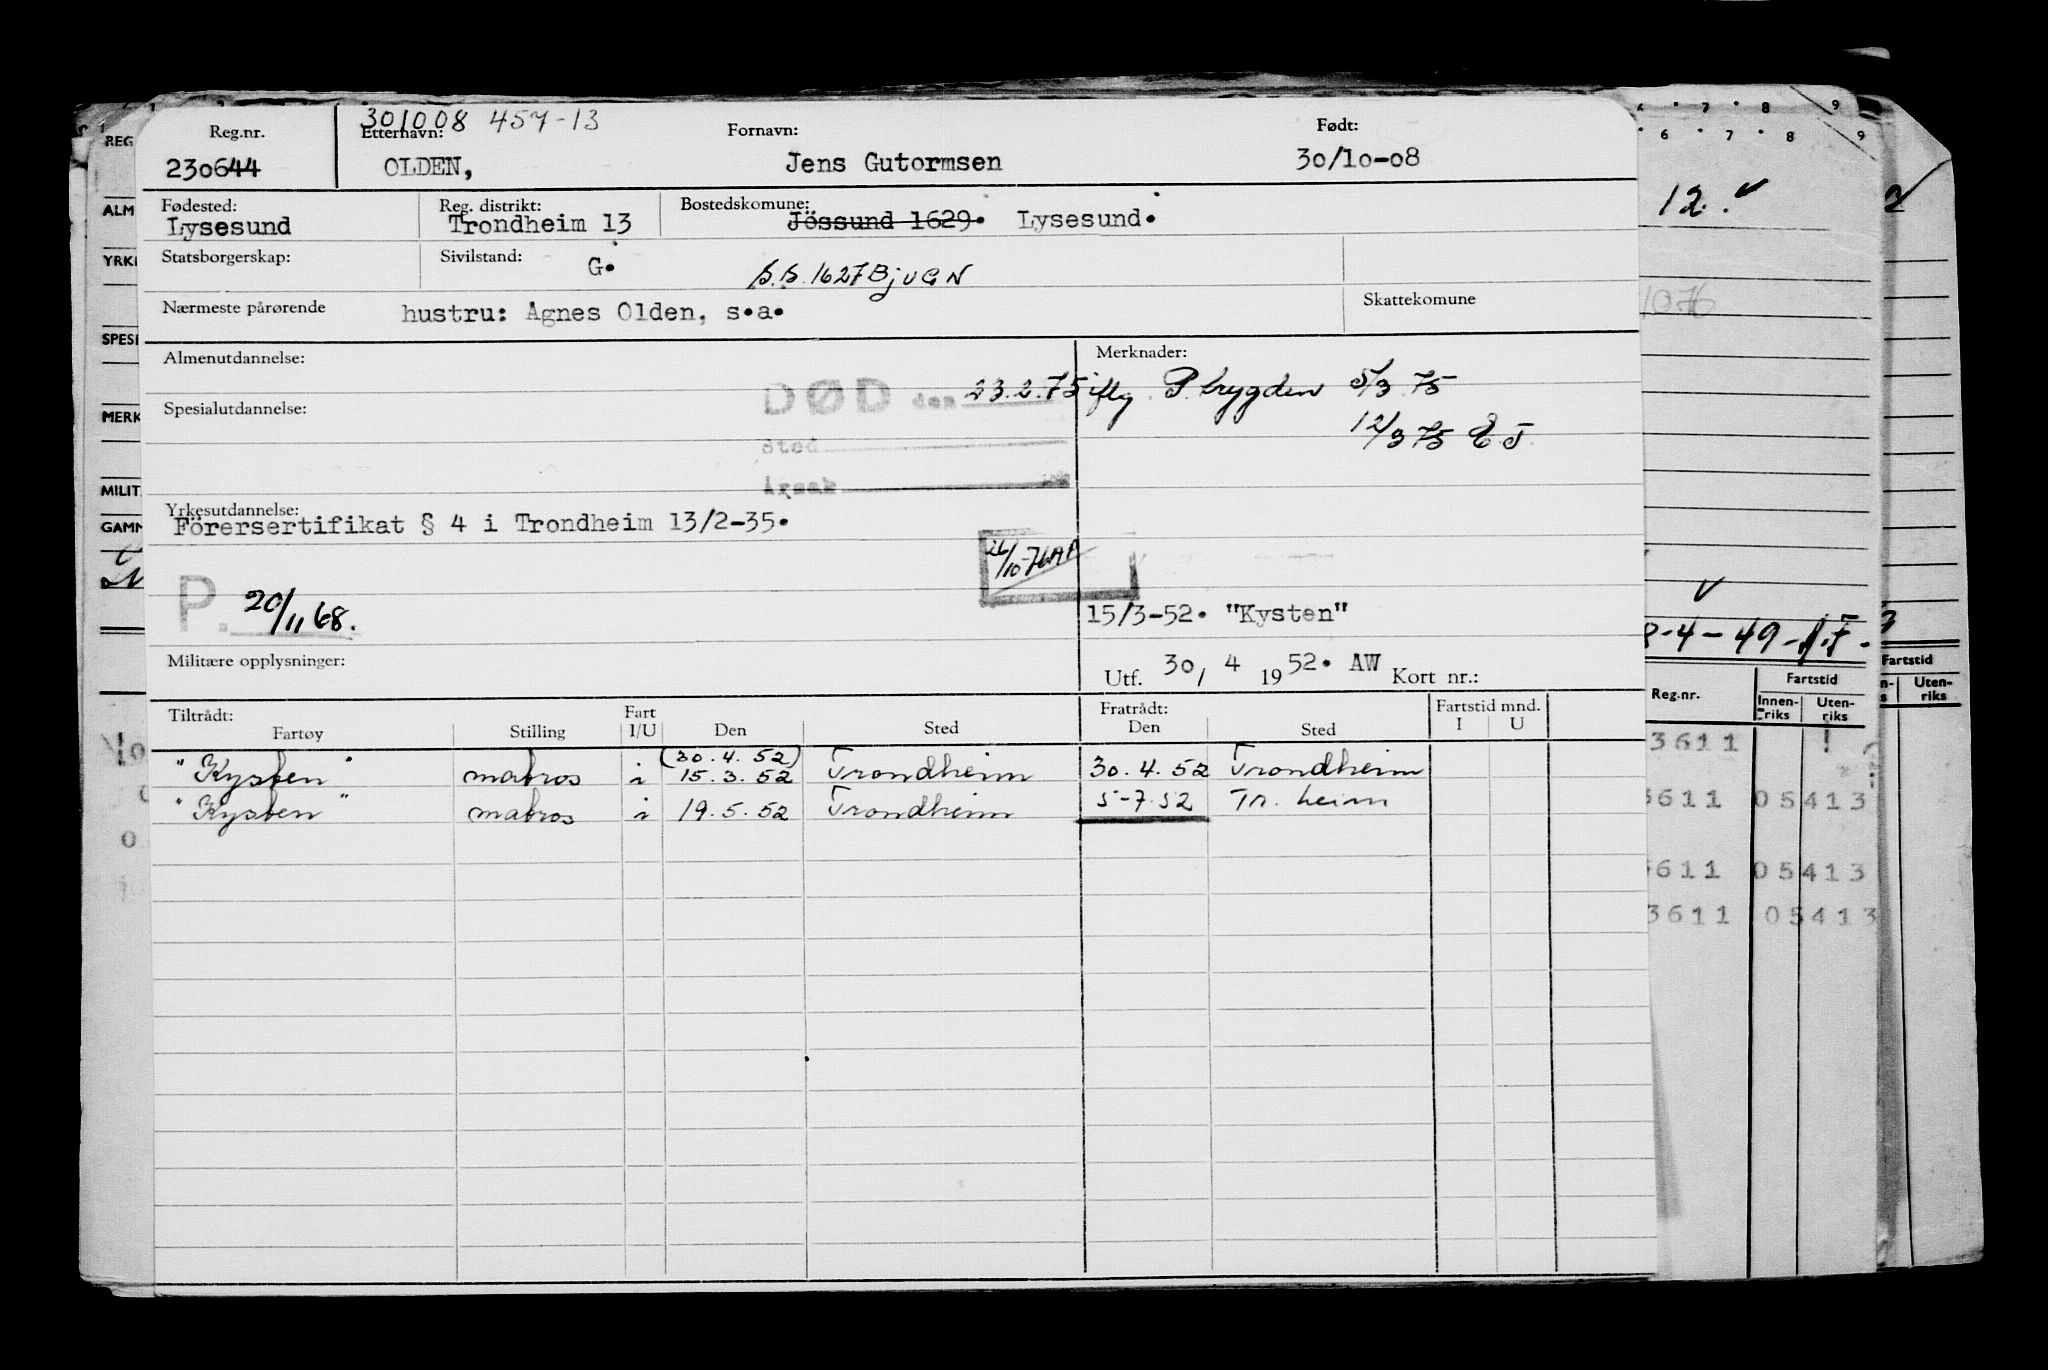 301008 457-13
Reg.nr. Etternavn: Fornavn: Født:
230644 OLDEN, Jens Gutormsen 30/10-08
Fødested: Reg. distrikt: Bostedskomune:
Lysesund Trondheim 13 Jössund 1629. Lysesund.
Statsborgerskap: Sivilstand: G. 1627 BjUGN
Nærmeste pårørende hustru: Agnes Olden, s.a. Skattekomune
Almenutdannelse: Merknader:
DØD den 23.2.75 iflg. P. trygden 5/3 75
Spesialutdannelse: 12/3 75 E J
Sted
Årsak
Yrkesutdannelse:
Förersertifikat § 4 i Trondheim 13/2-35.
26/10-76 AA
P. 20/11 68. 15/3-52. "Kysten"
Militære opplysninger: Utf. 30/ 4 1952. AW Kort nr.:
Tiltrådt: Fart Fratrådt: Fartstid mnd.
Fartøy Stilling I/U Den Sted Den Sted I U
(30.4.52)
"Kysten" matros i 15.3.52 Trondheim 30.4.52 Trondheim
"Kysten" matros i 19.5.52 Trondheim 5-7.52 Tr.heim
6 7 8 9
6 7 8 9
REG
ALM
YRKE
SPESI
MERK
MILIT
GAMM
12.
1076
8-4-49
Reg.nr. Fartstid
Innen-riks Uten-riks
Fartstid
Uten-riks
3611
3611 05413
3611 05413
3611 05413